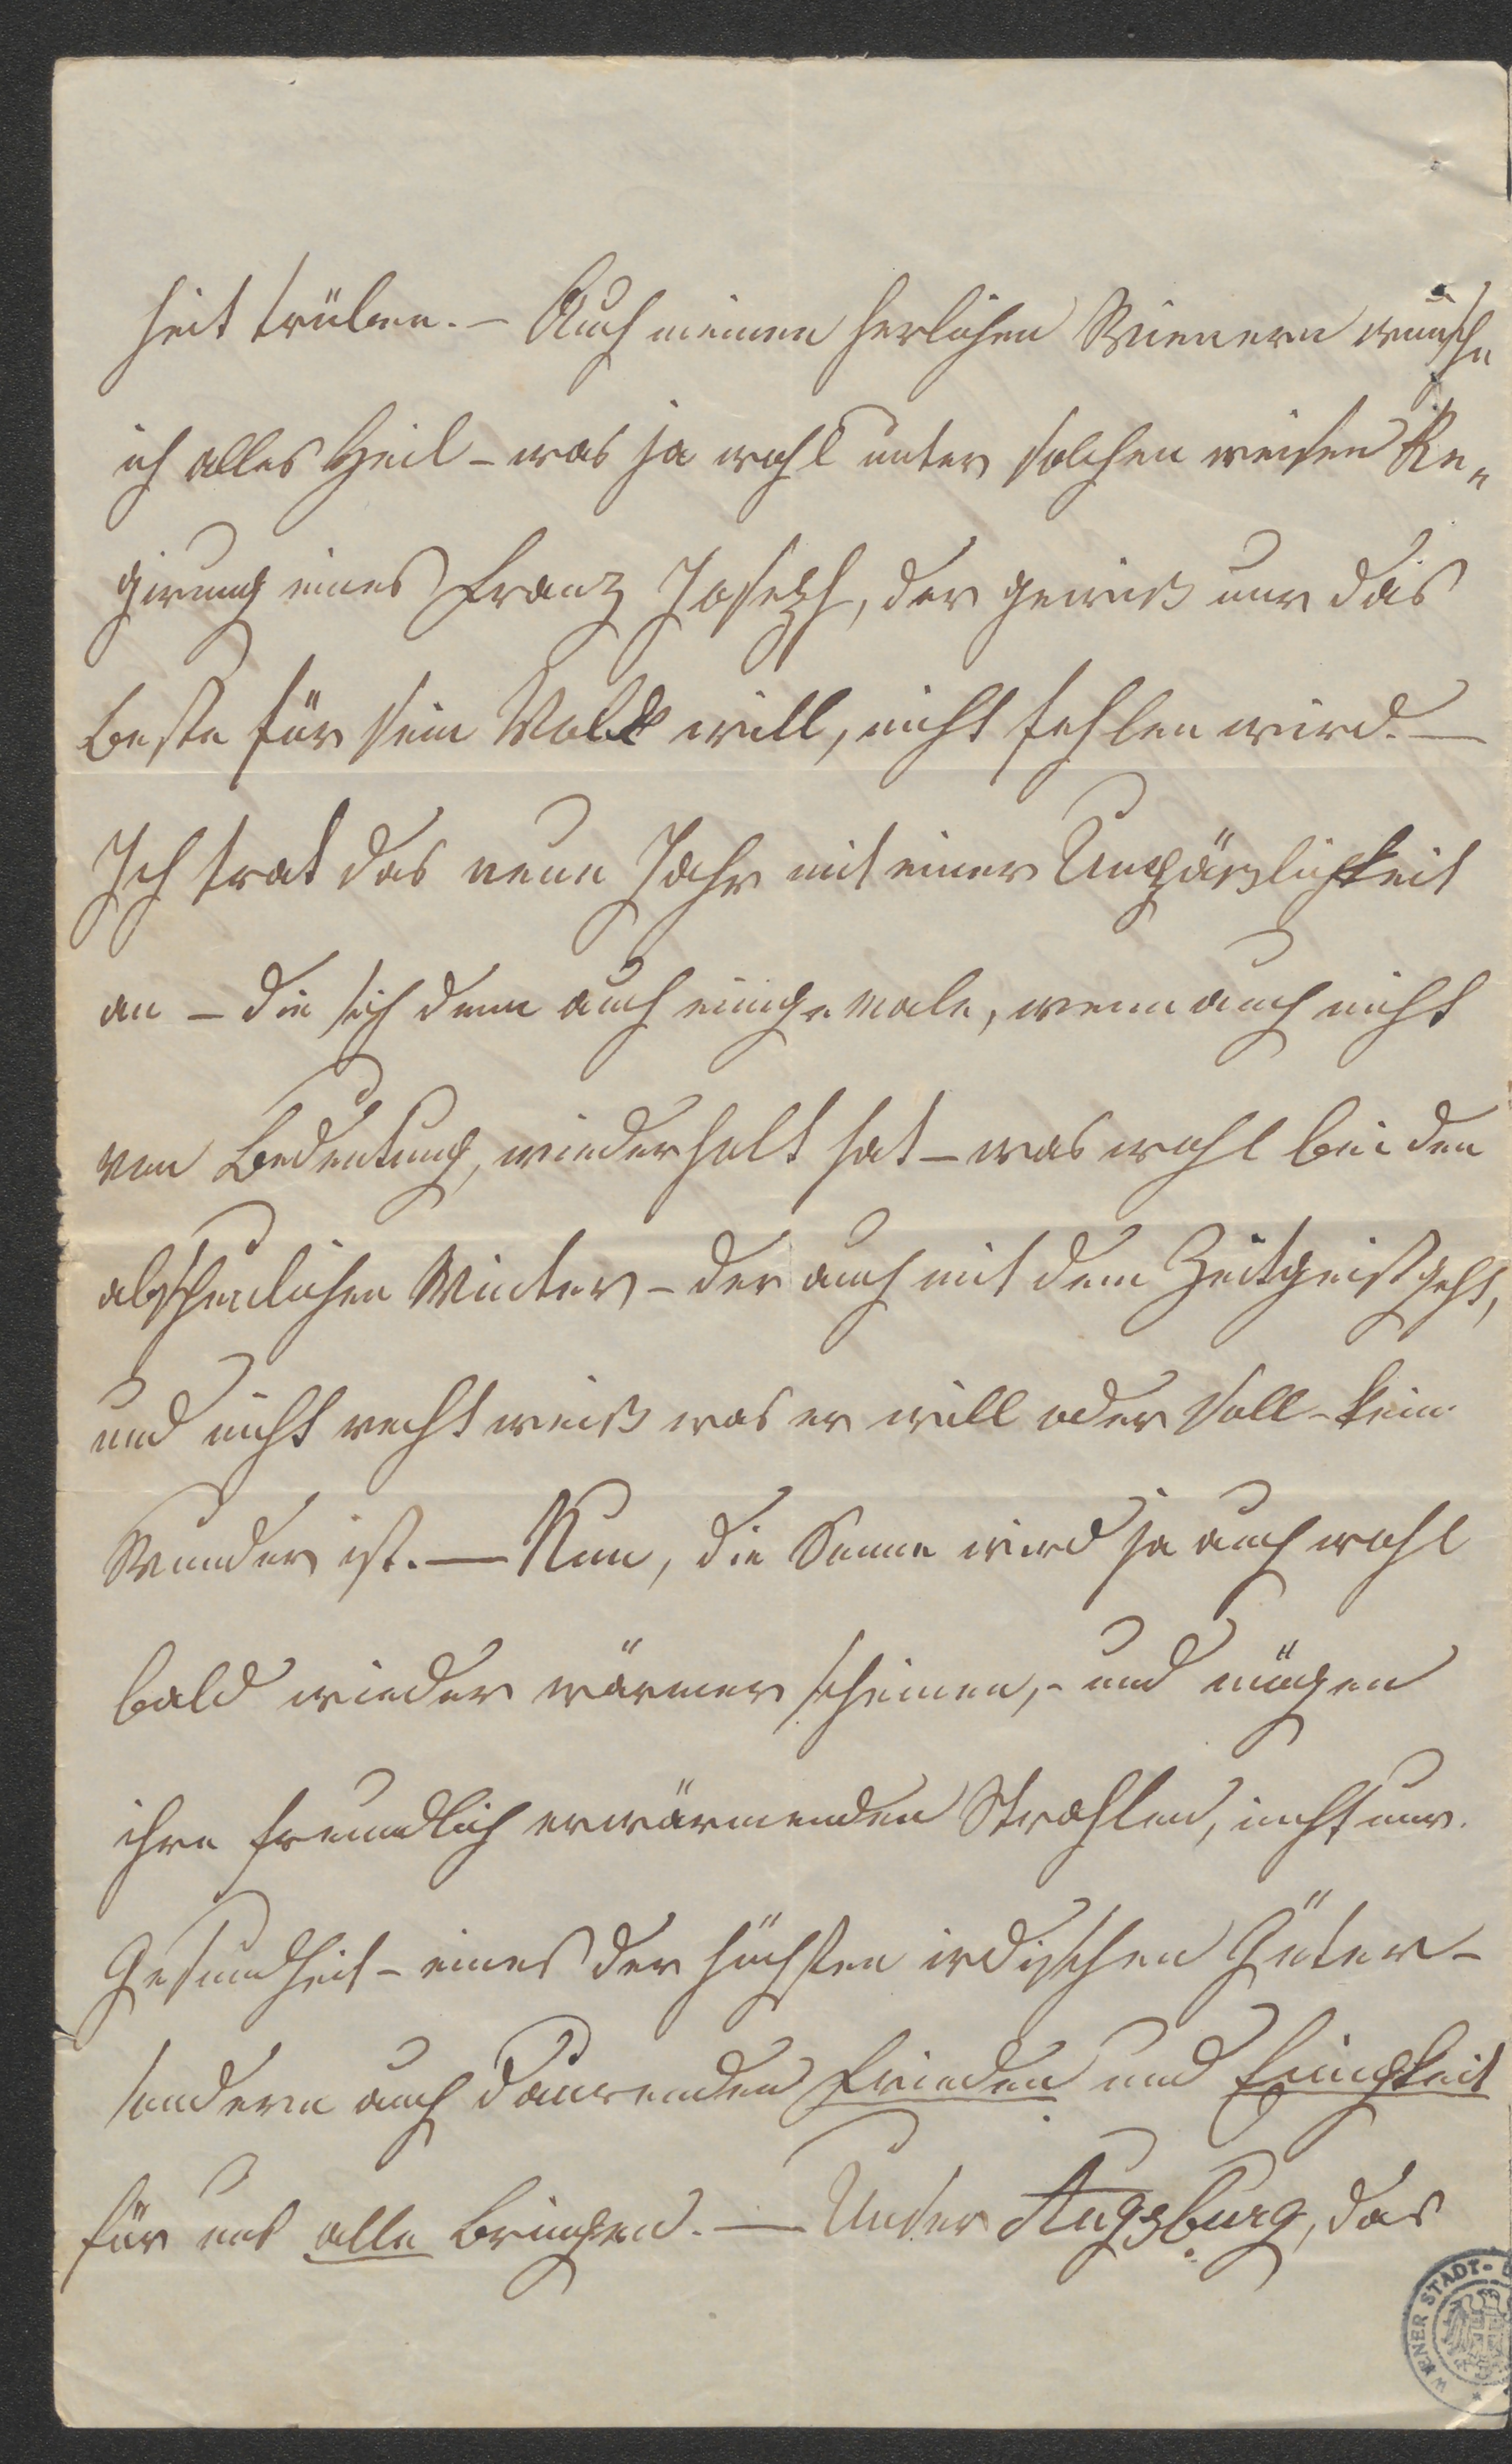 heit trüben. – Auch meinen herlichen Wienern wünsche
ich alles Heil – was ja wohl unter solchen weisen Re„
girung eines Franz Joseph, der gewiß nur das
beste für sein Volk will, nicht fehlen wird. –
Ich trat das neue Jahr mit einer Unpäßlichkeit
an – die sich denn auch einige male, wenn auch nicht
von Bedeutung, wiederholt hat – was wohl bei den
abscheulichen Winter – der auch mit dem Zeitgeist geht,
und nicht recht weiß was er will oder soll – kein
Wunder ist. – Nun, die Sonne wird ja auch wohl
bald wieder wärmer scheinen, – und mögen
ihre freundlich erwärmenden Strahlen, nicht nur
Gesundheit – eines der höchsten irdischen Güter –
sondern auch daurenden Frieden und Einigkeit
für uns alle bringen. – Unser Augsburg, das
WIENER STADT-